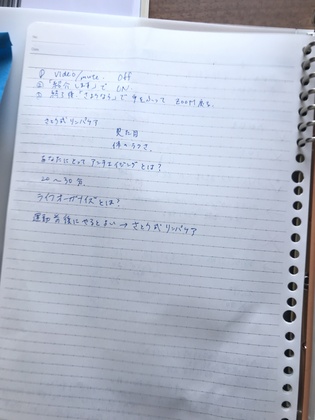 ① video/mute. Off
② 「紹介します」で ON
③ 終了後「さようなら」で 手をふって zoom 出る。
さとう式リンパケア
見た目
体のラクさ。
あなたにとってアンチエイジングとは？
20〜30分
ライフオーガナイズとは？
運動労後にやるとよい → さとう式リンパケア